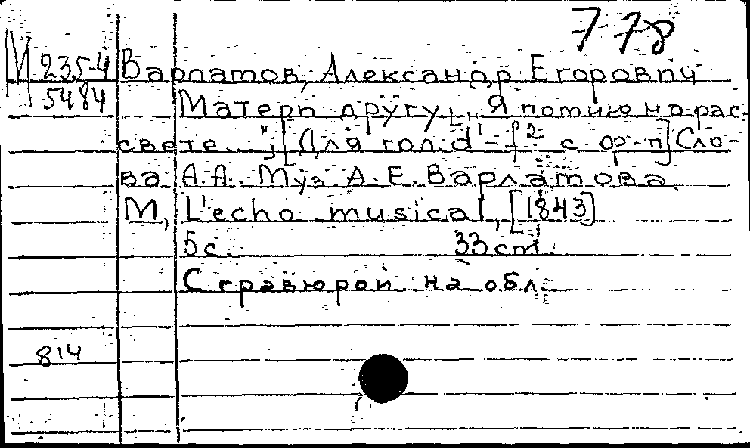 778
М 235-4 Варламов, Александр Егорович
5484 Матери другу „Я помню на рас-
свете..."; [Для гол. d¹-f² с ф-п] Сло-
ва А.А. Муз А.Е. Варламова
М, L'echo musical, [1843]
5 с. 33 cm.
С гравюрой на обл.
814